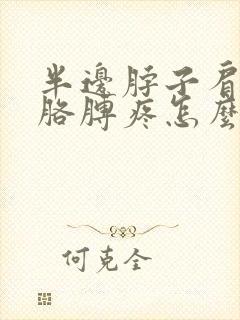 半邊脖子肩
胳膊疼怎麼
何克全